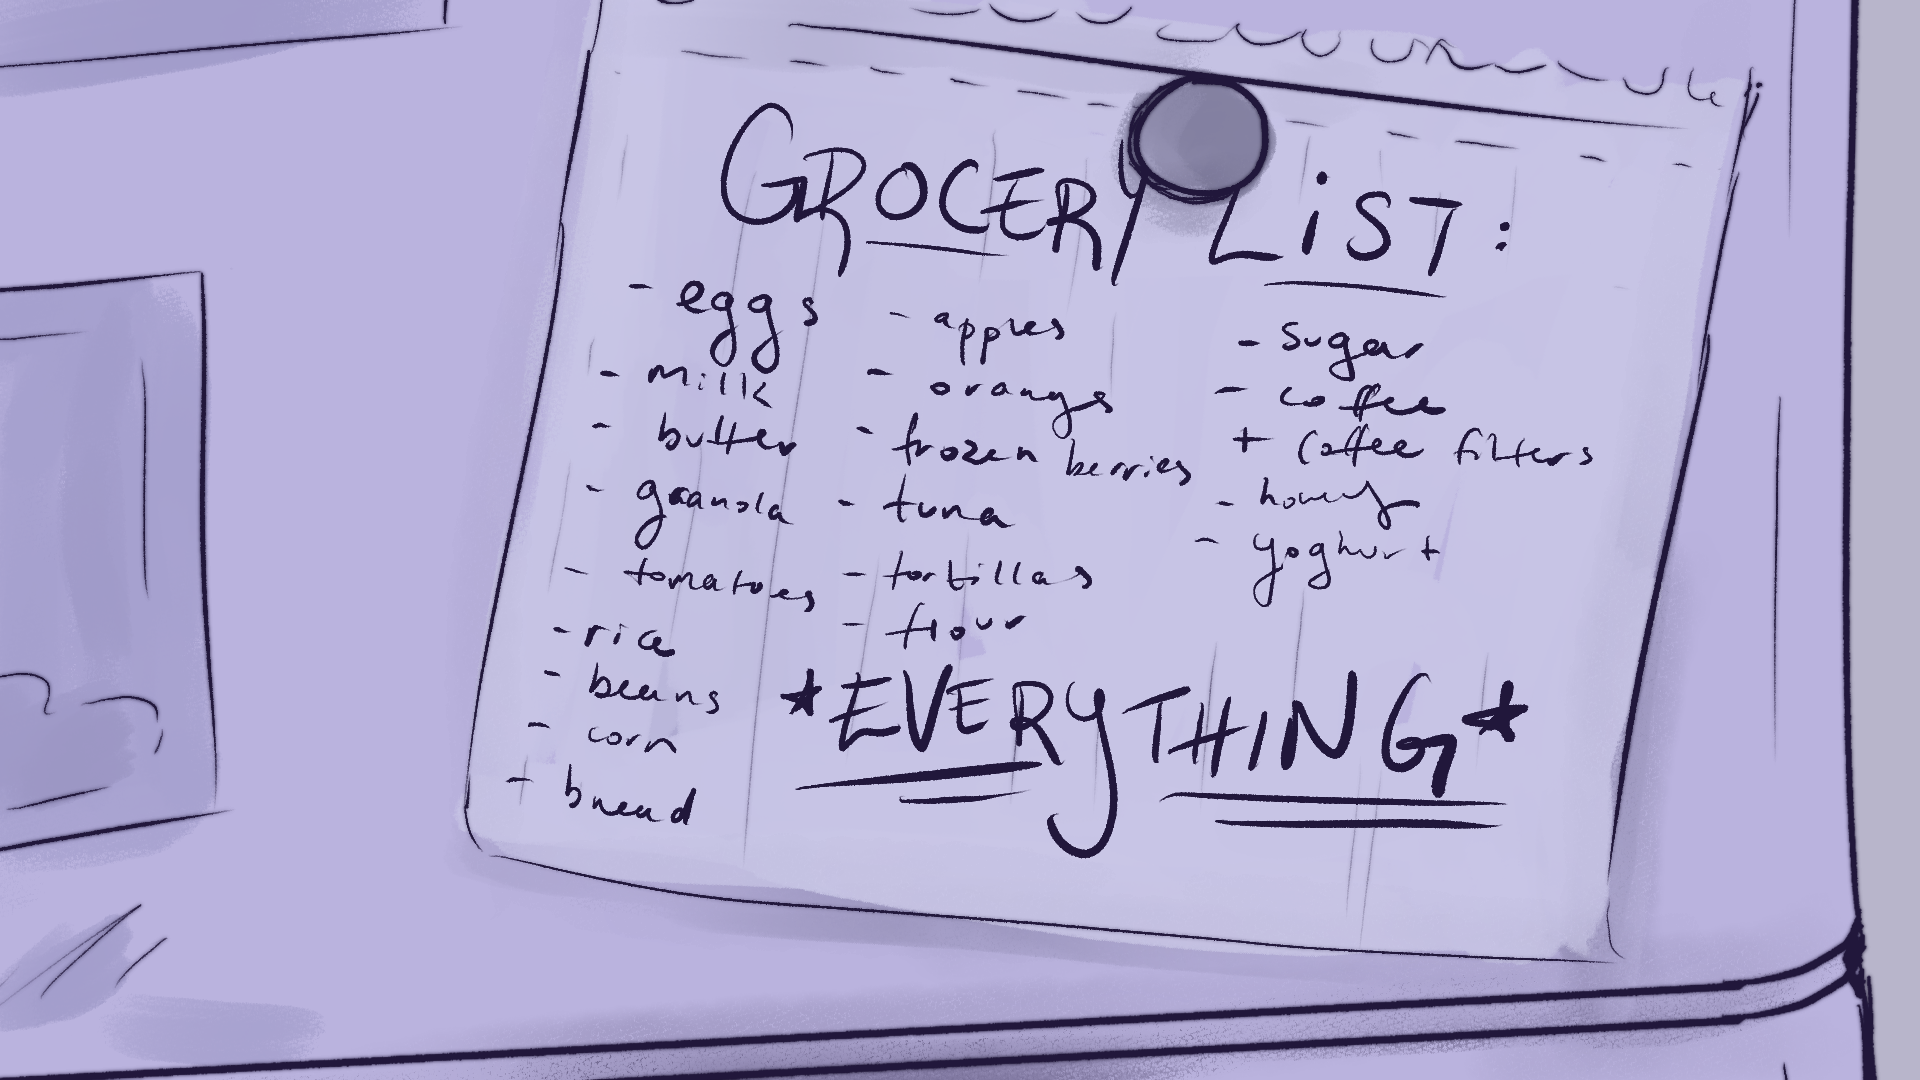 GROCERY LIST:
- eggs
- milk
- butter
- granola
- tomatoes
- rice
- beans
- corn
- bread
- apples
- oranges
- frozen berries
- tuna
- tortillas
- flour
- sugar
- coffee
+ coffee filters
- honey
- yoghurt
*EVERYTHING*